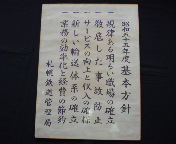 昭和五十五年度基本方針
一 規律ある明るい職場の確立
一 徹底した事故防止
一 サービスの向上と収入の確保
一 新しい輸送体系の確立
一 業務の効率化と経費の節約
札幌鉄道管理局